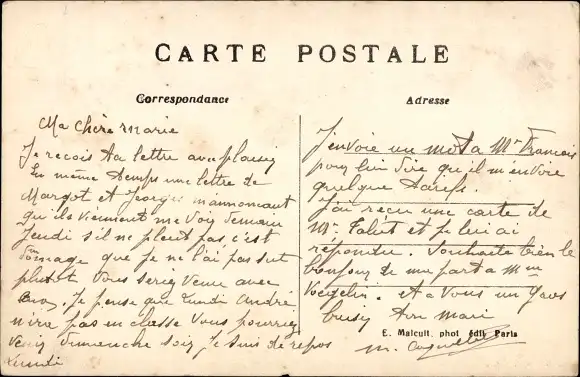 CARTE POSTALE
Correspondance
Ma chère Marie
Je recois ta lettre avec plaisir
En même temps une lettre de
Margot et Georges m'annoncant
qu'ils viennent me voir demain
Jeudi s'il ne pleut pas, c'est
domage que je ne l'ai pas sut
plutot Vous seriez venu avec
Je pense que Lundi André
n'ira pas en classe Vous pourriez
venir dimanche soir Je suis de repos
Lundi
Adresse
J'envoie un mot a Mr Francais
pour lui dire qu'il m'envoie
quelque tarifs.
J'ai reçu une carte de
Mr. et je lui ai
répondu. Souhaite bien le
bonjour de ma part a Mme
et a Vous un Gros
ton mari
E. Malcuit, phot édit, Paris
M.